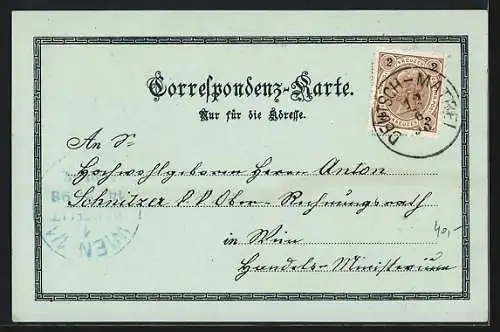 Correspondenz-Karte.
Nur für die Adresse.
2 2
DEUTSCH-MATREI
An Sr
Hochwohlgeboren Herrn Anton
Schnitzer k. k. Ober-Rechnungsrath
in Wien
Handels-Ministerium
WIEN
1
98
40,-